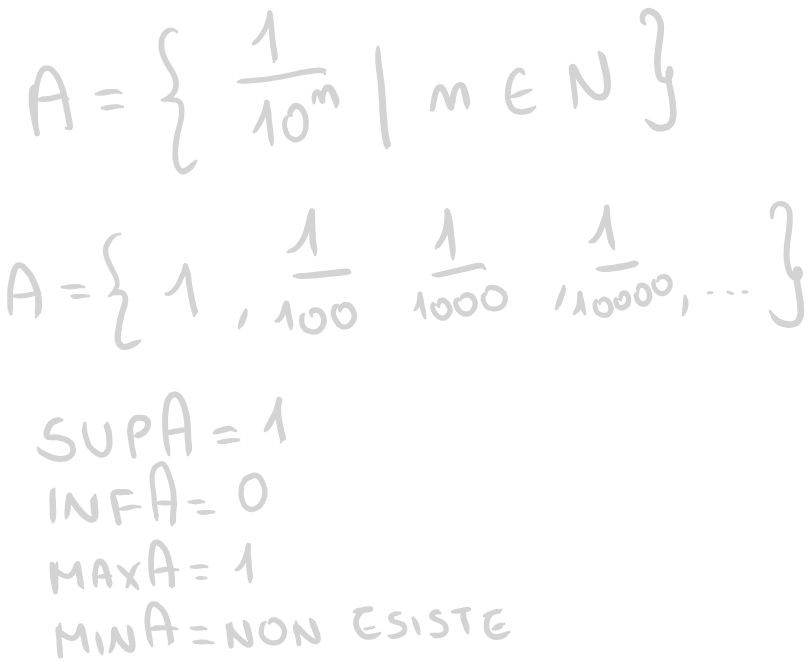 A = { 1/10^n | n ∈ N }
A = { 1 , 1/100 1/1000 , 1/10000 , ... }
SUP A = 1
INF A = 0
MAX A = 1
MIN A = NON ESISTE